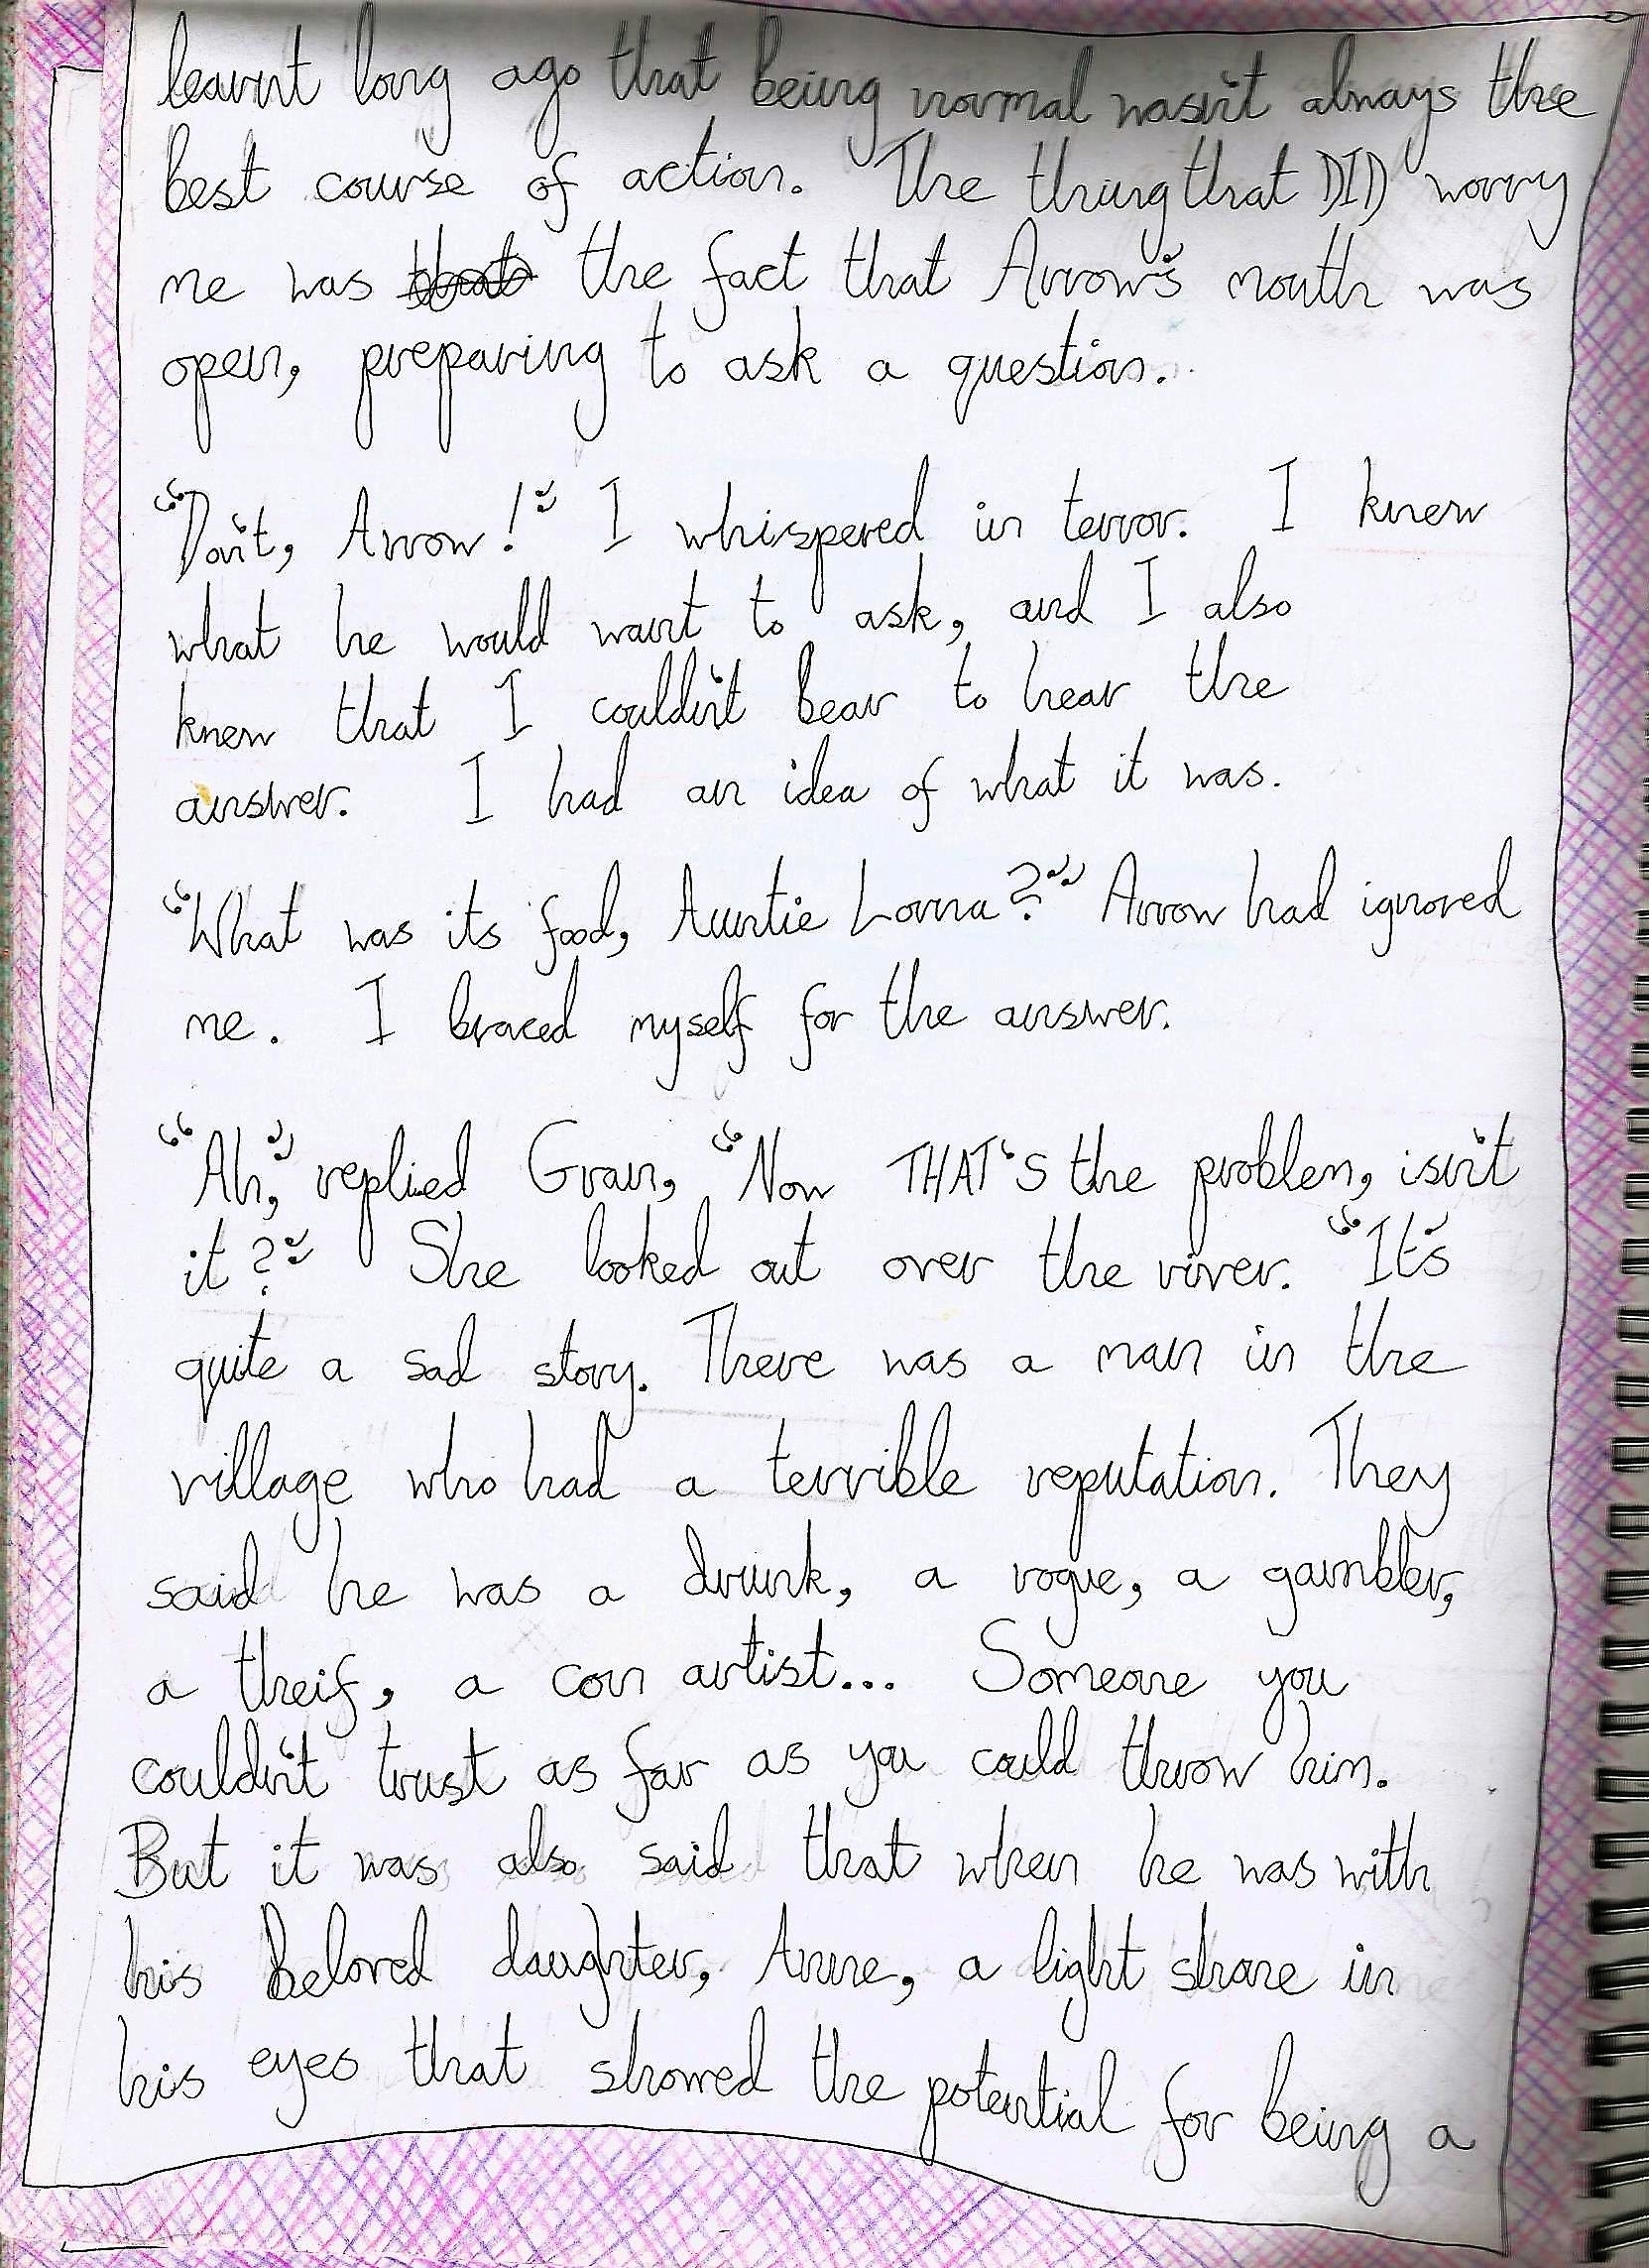 learnt long ago that being normal wasn't always the
best course of action. The thing that DID worry
me was that the fact that Arrow's mouth was
open, preparing to ask a question.
"Don't, Arrow!" I whispered in terror. I knew
what he would want to ask, and I also
knew that I couldn't bear to hear the
answer. I had an idea of what it was.
"What was its food, Auntie Lorna?" Arrow had ignored
me. I braced myself for the answer.
"Ah," replied Gran, "Now THAT'S the problem, isn't
it?" She looked out over the river. "It's
quite a sad story. There was a man in the
village who had a terrible reputation. They
said he was a drunk, a rogue, a gambler,
a theif, a con artist... Someone you
couldn't trust as far as you could throw him.
But it was also said that when he was with
his beloved daughter, Anne, a light shone in
his eyes that showed the potential for being a